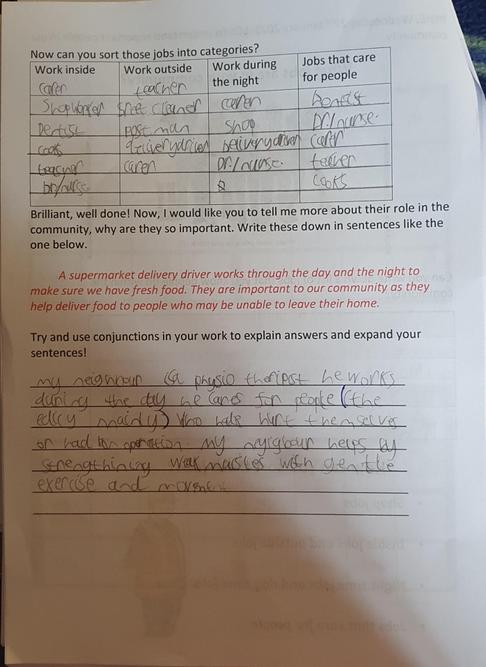 Now can you sort those jobs into categories?
Work inside Work outside Work during the night Jobs that care for people
carer teacher
Shopworker carer
Dentise postman shop Dr./nurse.
cooks deliverydriver carer
carer Dr./nurse.
Dr/nurse cooks
Brilliant, well done! Now, I would like you to tell me more about their role in the
community, why are they so important. Write these down in sentences like the
one below.
A supermarket delivery driver works through the day and the night to
make sure we have fresh food. They are important to our community as they
help deliver food to people who may be unable to leave their home.
Try and use conjunctions in your work to explain answers and expand your
sentences!
my neighbour is a physio theripist he works
during the day he cares for people (the
mainly) who have hurt themselves
or had operation. my helps by
weak with gentle
exercise and